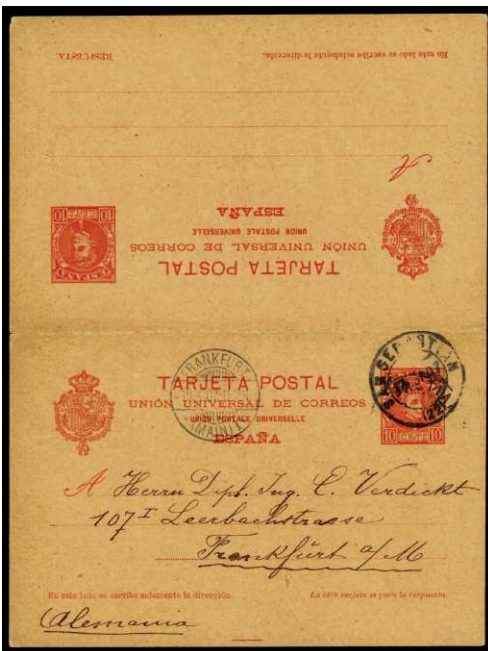 RESPUESTA.
En este lado se escribe solamente la dirección.
A
TARJETA POSTAL
UNIÓN UNIVERSAL DE CORREOS
UNION POSTALE UNIVERSELLE
ESPAÑA
10 10
TARJETA POSTAL
UNIÓN UNIVERSAL DE CORREOS
UNION POSTALE UNIVERSELLE
ESPAÑA
FRANKFURT
(MAIN) 1
SAN SEBASTIAN
10 CENTS 10
A Herrn Dipl. Ing. C. Verdickt
107 I Leerbachstrasse
Frankfürt a/M
En este lado se escribe solamente la dirección.
La otra tarjeta es para la respuesta.
Alemania